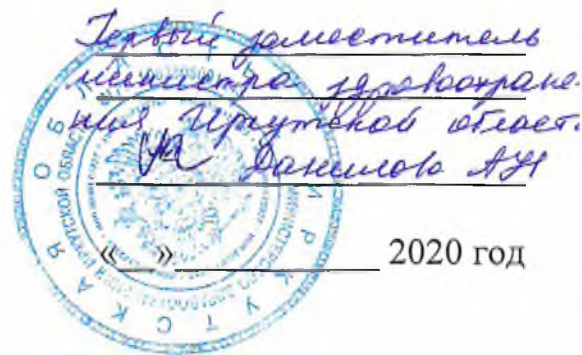 Первый заместитель
министра здравоохране-
ния Иркутской област.
Данилова АН
«__»____________ 2020 год
ИРКУТСКАЯ ОБЛ
МИНИСТЕРСТВО ЗДРАВООХ
ИРКУТСКОЙ ОБЛАСТИ